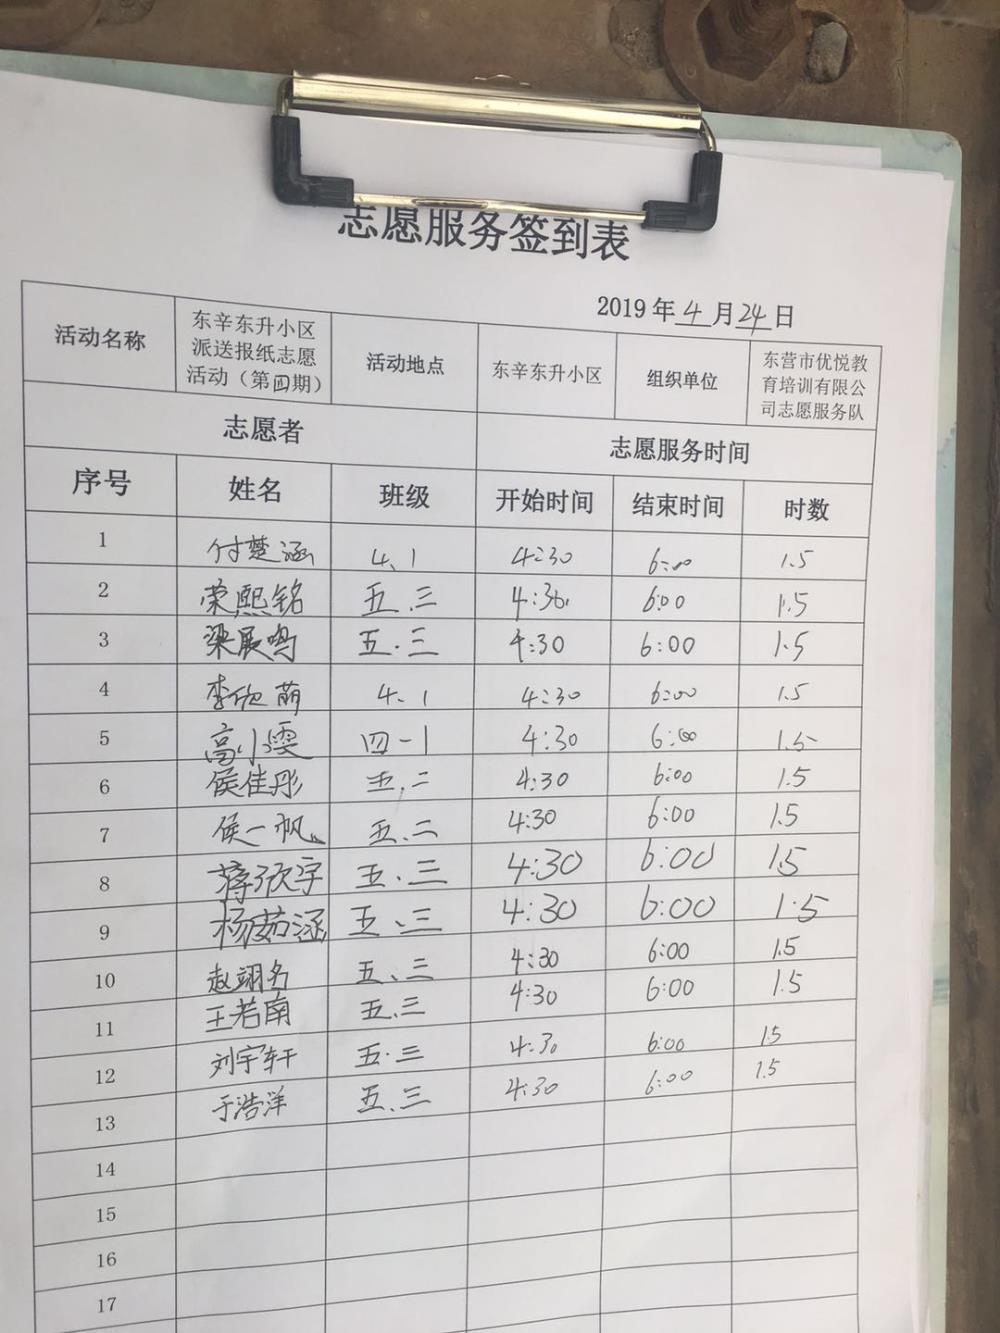 志愿服务签到表
2019年4月24日
活动名称 东辛东升小区派送报纸志愿活动（第四期） 活动地点 东辛东升小区 组织单位 东营市优悦教育培训有限公司志愿服务队
志愿者 志愿服务时间
序号 姓名 班级 开始时间 结束时间 时数
1 付楚涵 4、1 4:30 6:00 1.5
2 荣熙铭 五.三 4:30 6:00 1.5
3 梁展鸣 五.三 4:30 6:00 1.5
4 李欣萌 4、1 4:30 6:00 1.5
5 高小雯 四一1 4:30 6:00 1.5
6 侯佳彤 五.二 4:30 6:00 1.5
7 侯一帆 五.二 4:30 6:00 1.5
8 蒋欣宇 五.三 4:30 6:00 1.5
9 杨茹涵 五、三 4:30 6:00 1.5
10 赵翊名 五、三 4:30 6:00 1.5
11 王若南 五.三 4:30 6:00 1.5
12 刘宇轩 五.三 4:30 6:00 1.5
13 于浩洋 五.三 4:30 6:00 1.5
14
15
16
17